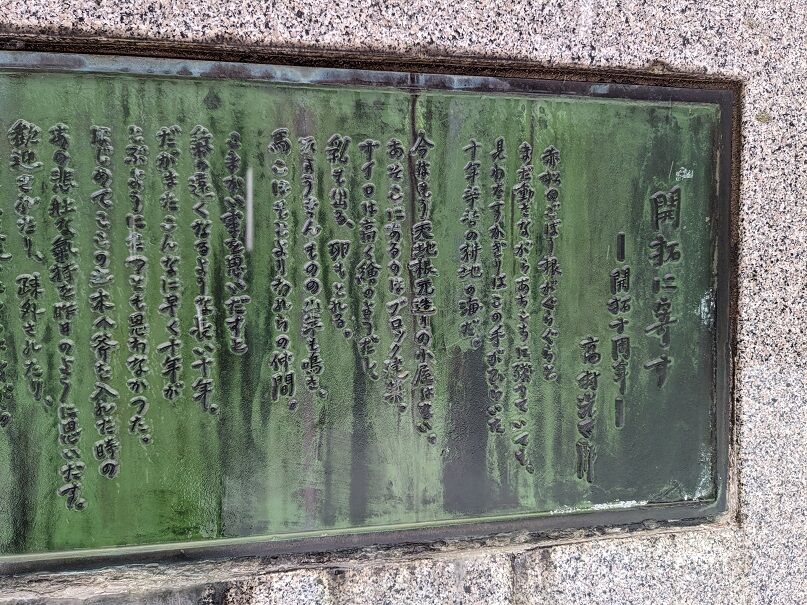 開拓に寄す
―開拓十周年―
高村光太郎
赤松のごぼう根がぐらぐらと
まだ動きながらあちこちに残っていても、
見わたすかぎりはこの手がひらいた
十年辛苦の耕地の海だ。
今はもう天地根元造りの小屋はない。
あそこにあるのはブロック建築。
サイロは高く絵のようだし、
乳も出る、卵もとれる。
ひようひようものの山羊も鳴き、
馬こはもとよりわれらの仲間。
こまかい事を思いだすと
気の遠くなるような長い十年。
だがまたこんなに早く十年が
とぶようにたつとも思わなかった。
はじめてここの立木へ斧を入れた時の
あの悲壮な気持を昨日のように思いだす。
歓迎されたり、疎外されたり、